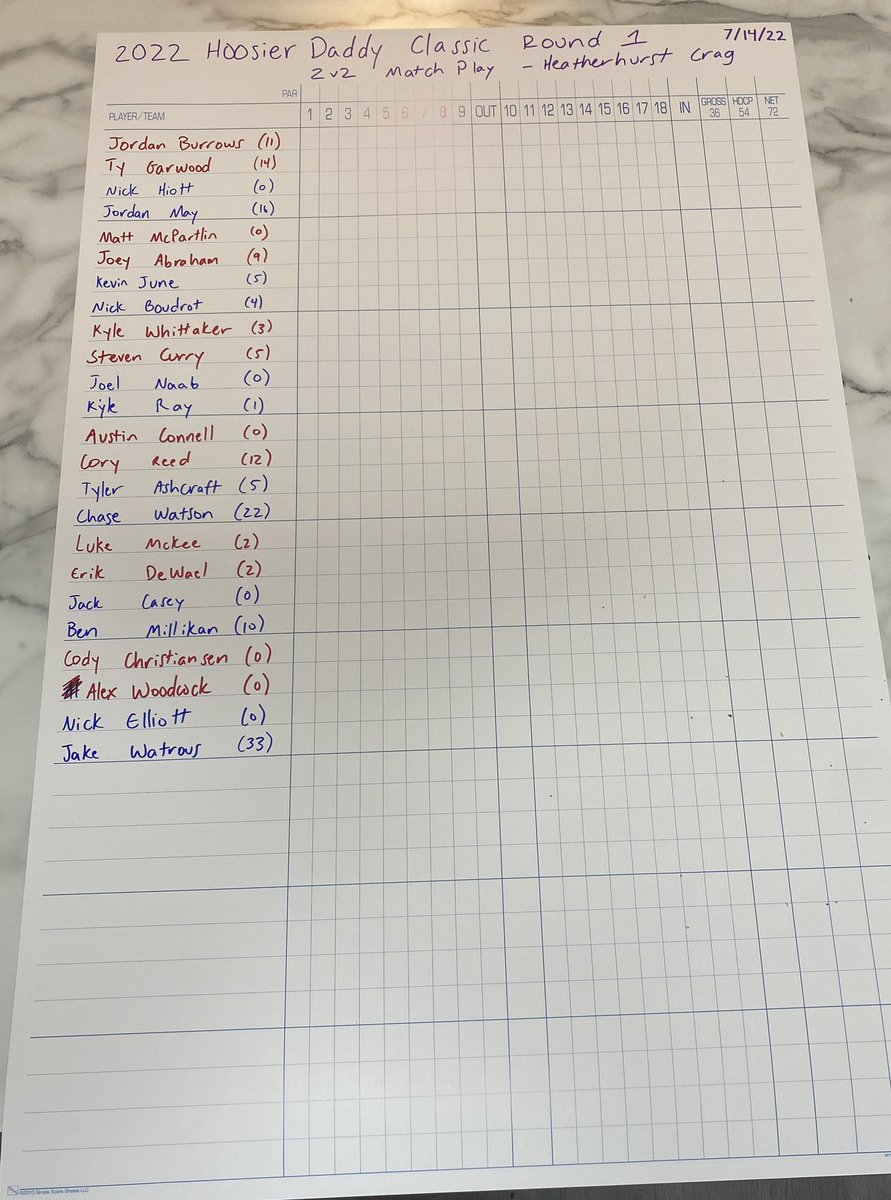 2022 Hoosier Daddy Classic Round 1 7/14/22
2v2 Match Play - Heatherhurst Crag
PAR
PLAYER/TEAM 1 2 3 4 5 6 7 8 9 OUT 10 11 12 13 14 15 16 17 18 IN GROSS 36 HDCP 54 NET 72
Jordan Burrows (11)
Ty Garwood (14)
Nick Hiott (0)
Jordan May (16)
Matt McPartlin (0)
Joey Abraham (9)
Kevin June (5)
Nick Boudrot (4)
Kyle Whittaker (3)
Steven Curry (5)
Joel Naab (0)
Kyle Ray (1)
Austin Connell (0)
Cory Reed (12)
Tyler Ashcraft (5)
Chase Watson (22)
Luke McKee (2)
Erik DeWael (2)
Jack Casey (0)
Ben Millikan (10)
Cody Christiansen (0)
Alex Woodcock (0)
Nick Elliott (0)
Jake Watrous (33)
©2013 Simple Score Sheets LLC